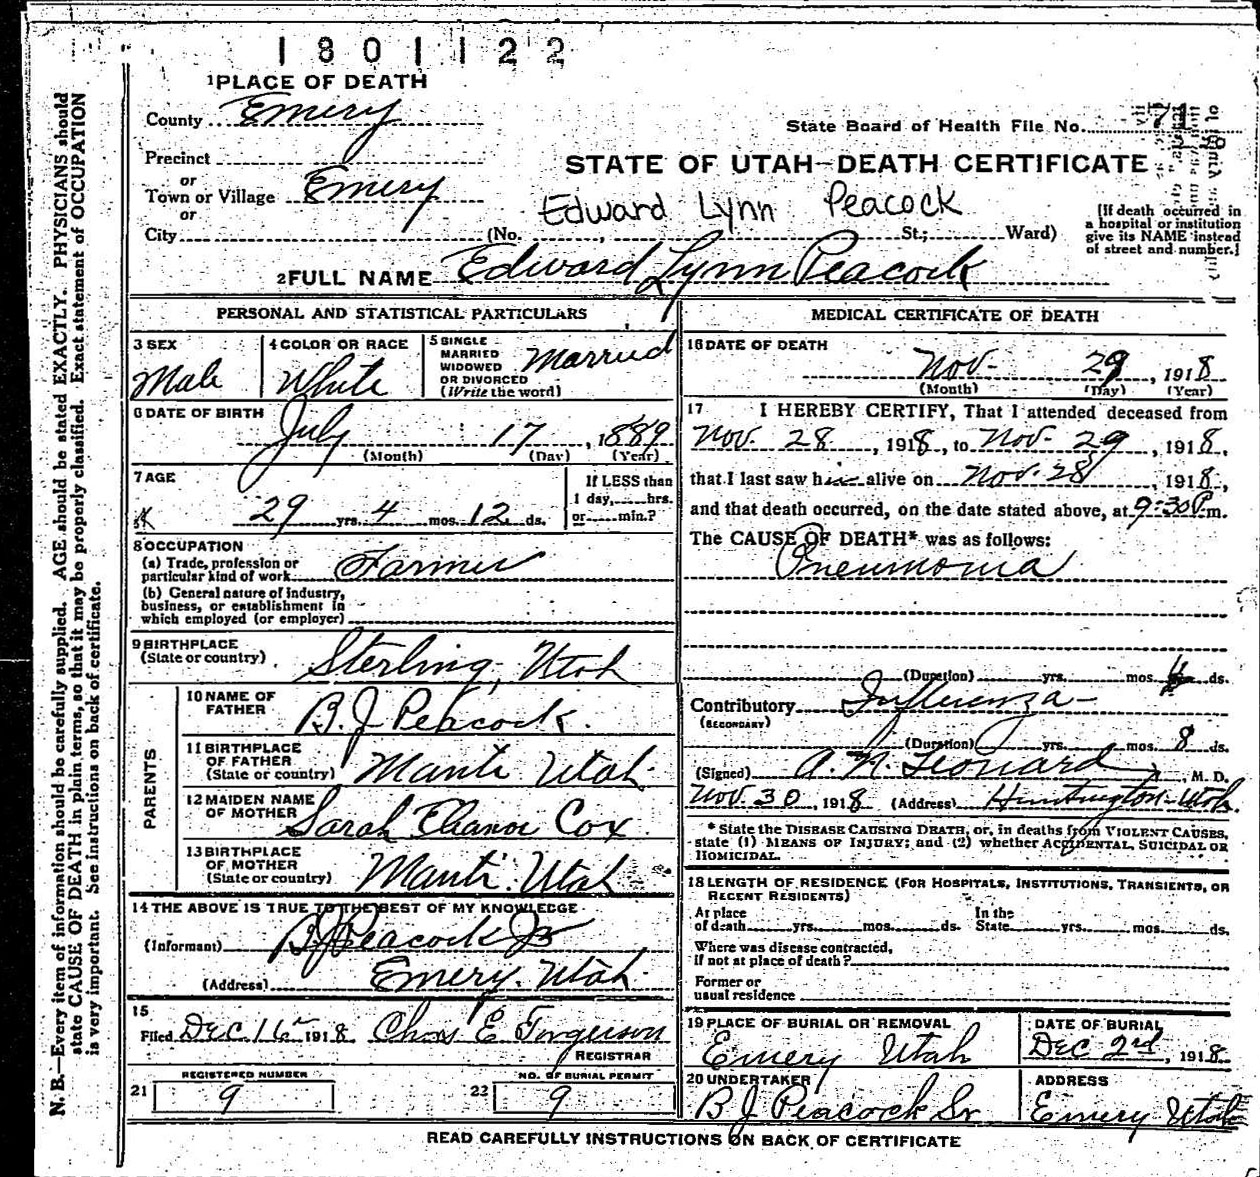 1801122
1 PLACE OF DEATH
County Emery
State Board of Health File No. 71
Precinct
or
STATE OF UTAH—DEATH CERTIFICATE
Town or Village Emery
or
Edward Lynn Peacock
City (No. , St.; Ward)
[If death occurred in
a hospital or institution
give its NAME instead
of street and number.]
2 FULL NAME Edward Lynn Peacock
PERSONAL AND STATISTICAL PARTICULARS
3 SEX
Male
4 COLOR OR RACE
White
5 SINGLE
MARRIED
WIDOWED
OR DIVORCED
(Write the word)
Married
6 DATE OF BIRTH
July 17, 1889
(Month) (Day) (Year)
7 AGE
29 yrs. 4 mos. 12 ds.
If LESS than
1 day, hrs.
or min.?
8 OCCUPATION
(a) Trade, profession or
particular kind of work Farmer
(b) General nature of industry,
business, or establishment in
which employed (or employer)
9 BIRTHPLACE
(State or country) Sterling, Utah
PARENTS
10 NAME OF
FATHER B. J. Peacock.
11 BIRTHPLACE
OF FATHER
(State or country) Manti Utah
12 MAIDEN NAME
OF MOTHER Sarah Elianor Cox
13 BIRTHPLACE
OF MOTHER
(State or country) Manti Utah
14 THE ABOVE IS TRUE TO THE BEST OF MY KNOWLEDGE
(Informant) B J Peacock Jr
(Address) Emery. Utah.
15
Filed Dec 16 1918 Chas E Forgerson
REGISTRAR
REGISTERED NUMBER
21 9
NO. OF BURIAL PERMIT
22 9
MEDICAL CERTIFICATE OF DEATH
16 DATE OF DEATH
Nov. 29, 1918
(Month) (Day) (Year)
17 I HEREBY CERTIFY, That I attended deceased from
Nov. 28, 1918, to Nov. 29, 1918,
that I last saw him alive on Nov. 28, 1918,
and that death occurred, on the date stated above, at 9:30 P.m.
The CAUSE OF DEATH* was as follows:
Pneumonia
(Duration) yrs. mos. ds.
Contributory Influenza
(SECONDARY)
(Duration) yrs. mos. 8 ds.
(Signed) A. N. Leonard, M. D.
Nov 30, 1918 (Address) Huntington-Utah.
* State the DISEASE CAUSING DEATH, or, in deaths from VIOLENT CAUSES,
state (1) MEANS OF INJURY; and (2) whether ACCIDENTAL, SUICIDAL OR
HOMICIDAL.
18 LENGTH OF RESIDENCE (FOR HOSPITALS, INSTITUTIONS, TRANSIENTS, OR
RECENT RESIDENTS)
At place
of death yrs. mos. ds.
In the
State yrs. mos. ds.
Where was disease contracted,
if not at place of death?
Former or
usual residence
19 PLACE OF BURIAL OR REMOVAL
Emery Utah
DATE OF BURIAL
Dec 2nd, 1918
20 UNDERTAKER
B J Peacock Sr
ADDRESS
Emery Utah
READ CAREFULLY INSTRUCTIONS ON BACK OF CERTIFICATE
N. B.—Every item of information should be carefully supplied. AGE should be stated EXACTLY. PHYSICIANS should
state CAUSE OF DEATH in plain terms, so that it may be properly classified. Exact statement of OCCUPATION
is very important. See instructions on back of certificate.